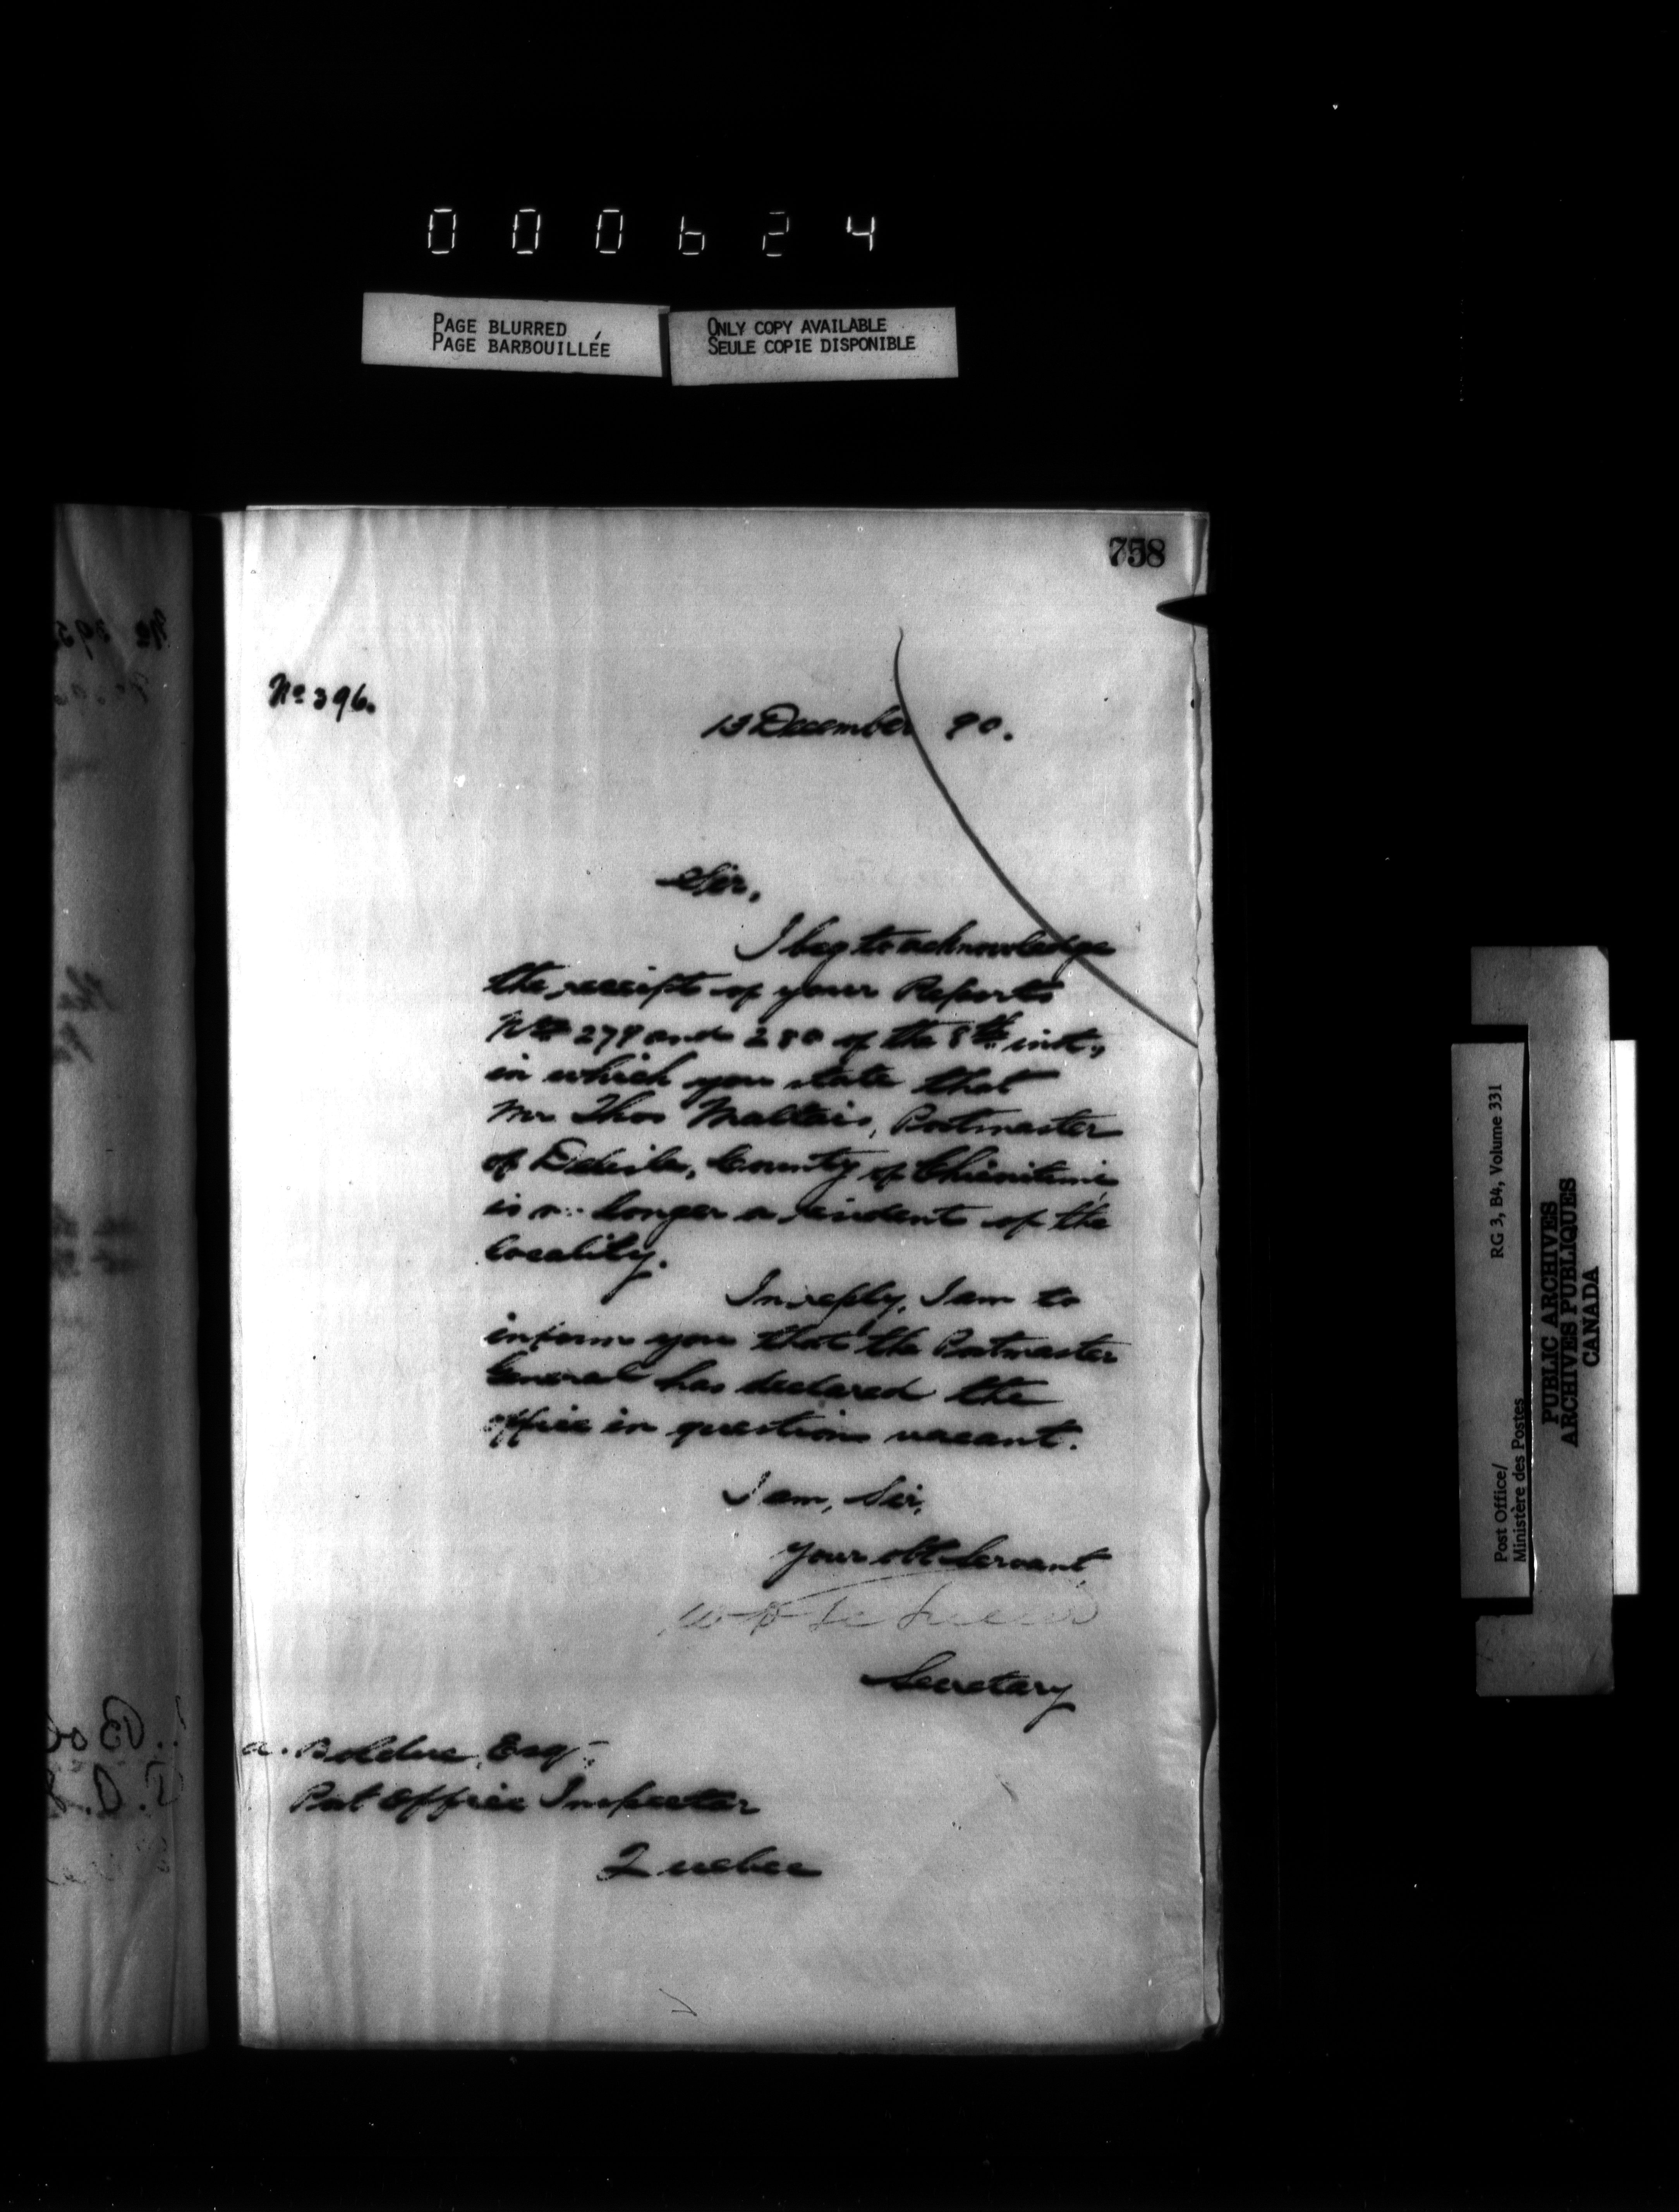 000624
PAGE BLURRED
PAGE BARBOUILLÉE
ONLY COPY AVAILABLE
SEULE COPIE DISPONIBLE
758
No 396.
13 December 90.
Sir,
I beg to acknowledge
the receipt of your Reports
Nos 279 and 280 of the 8th inst.,
in which you state that
Mr Thos Maltais, Postmaster
of Delisle, County of Chicoutimi
is no longer a resident of the
locality.
In reply, I am to
inform you that the Postmaster
General has declared the
office in question vacant.
I am, Sir,
your obt Servant,
Secretary
A. Bolduc, Esq.
Post Office Inspector
Quebec
Post Office/
Ministère des Postes
RG 3, B4, Volume 331
PUBLIC ARCHIVES
ARCHIVES PUBLIQUES
CANADA